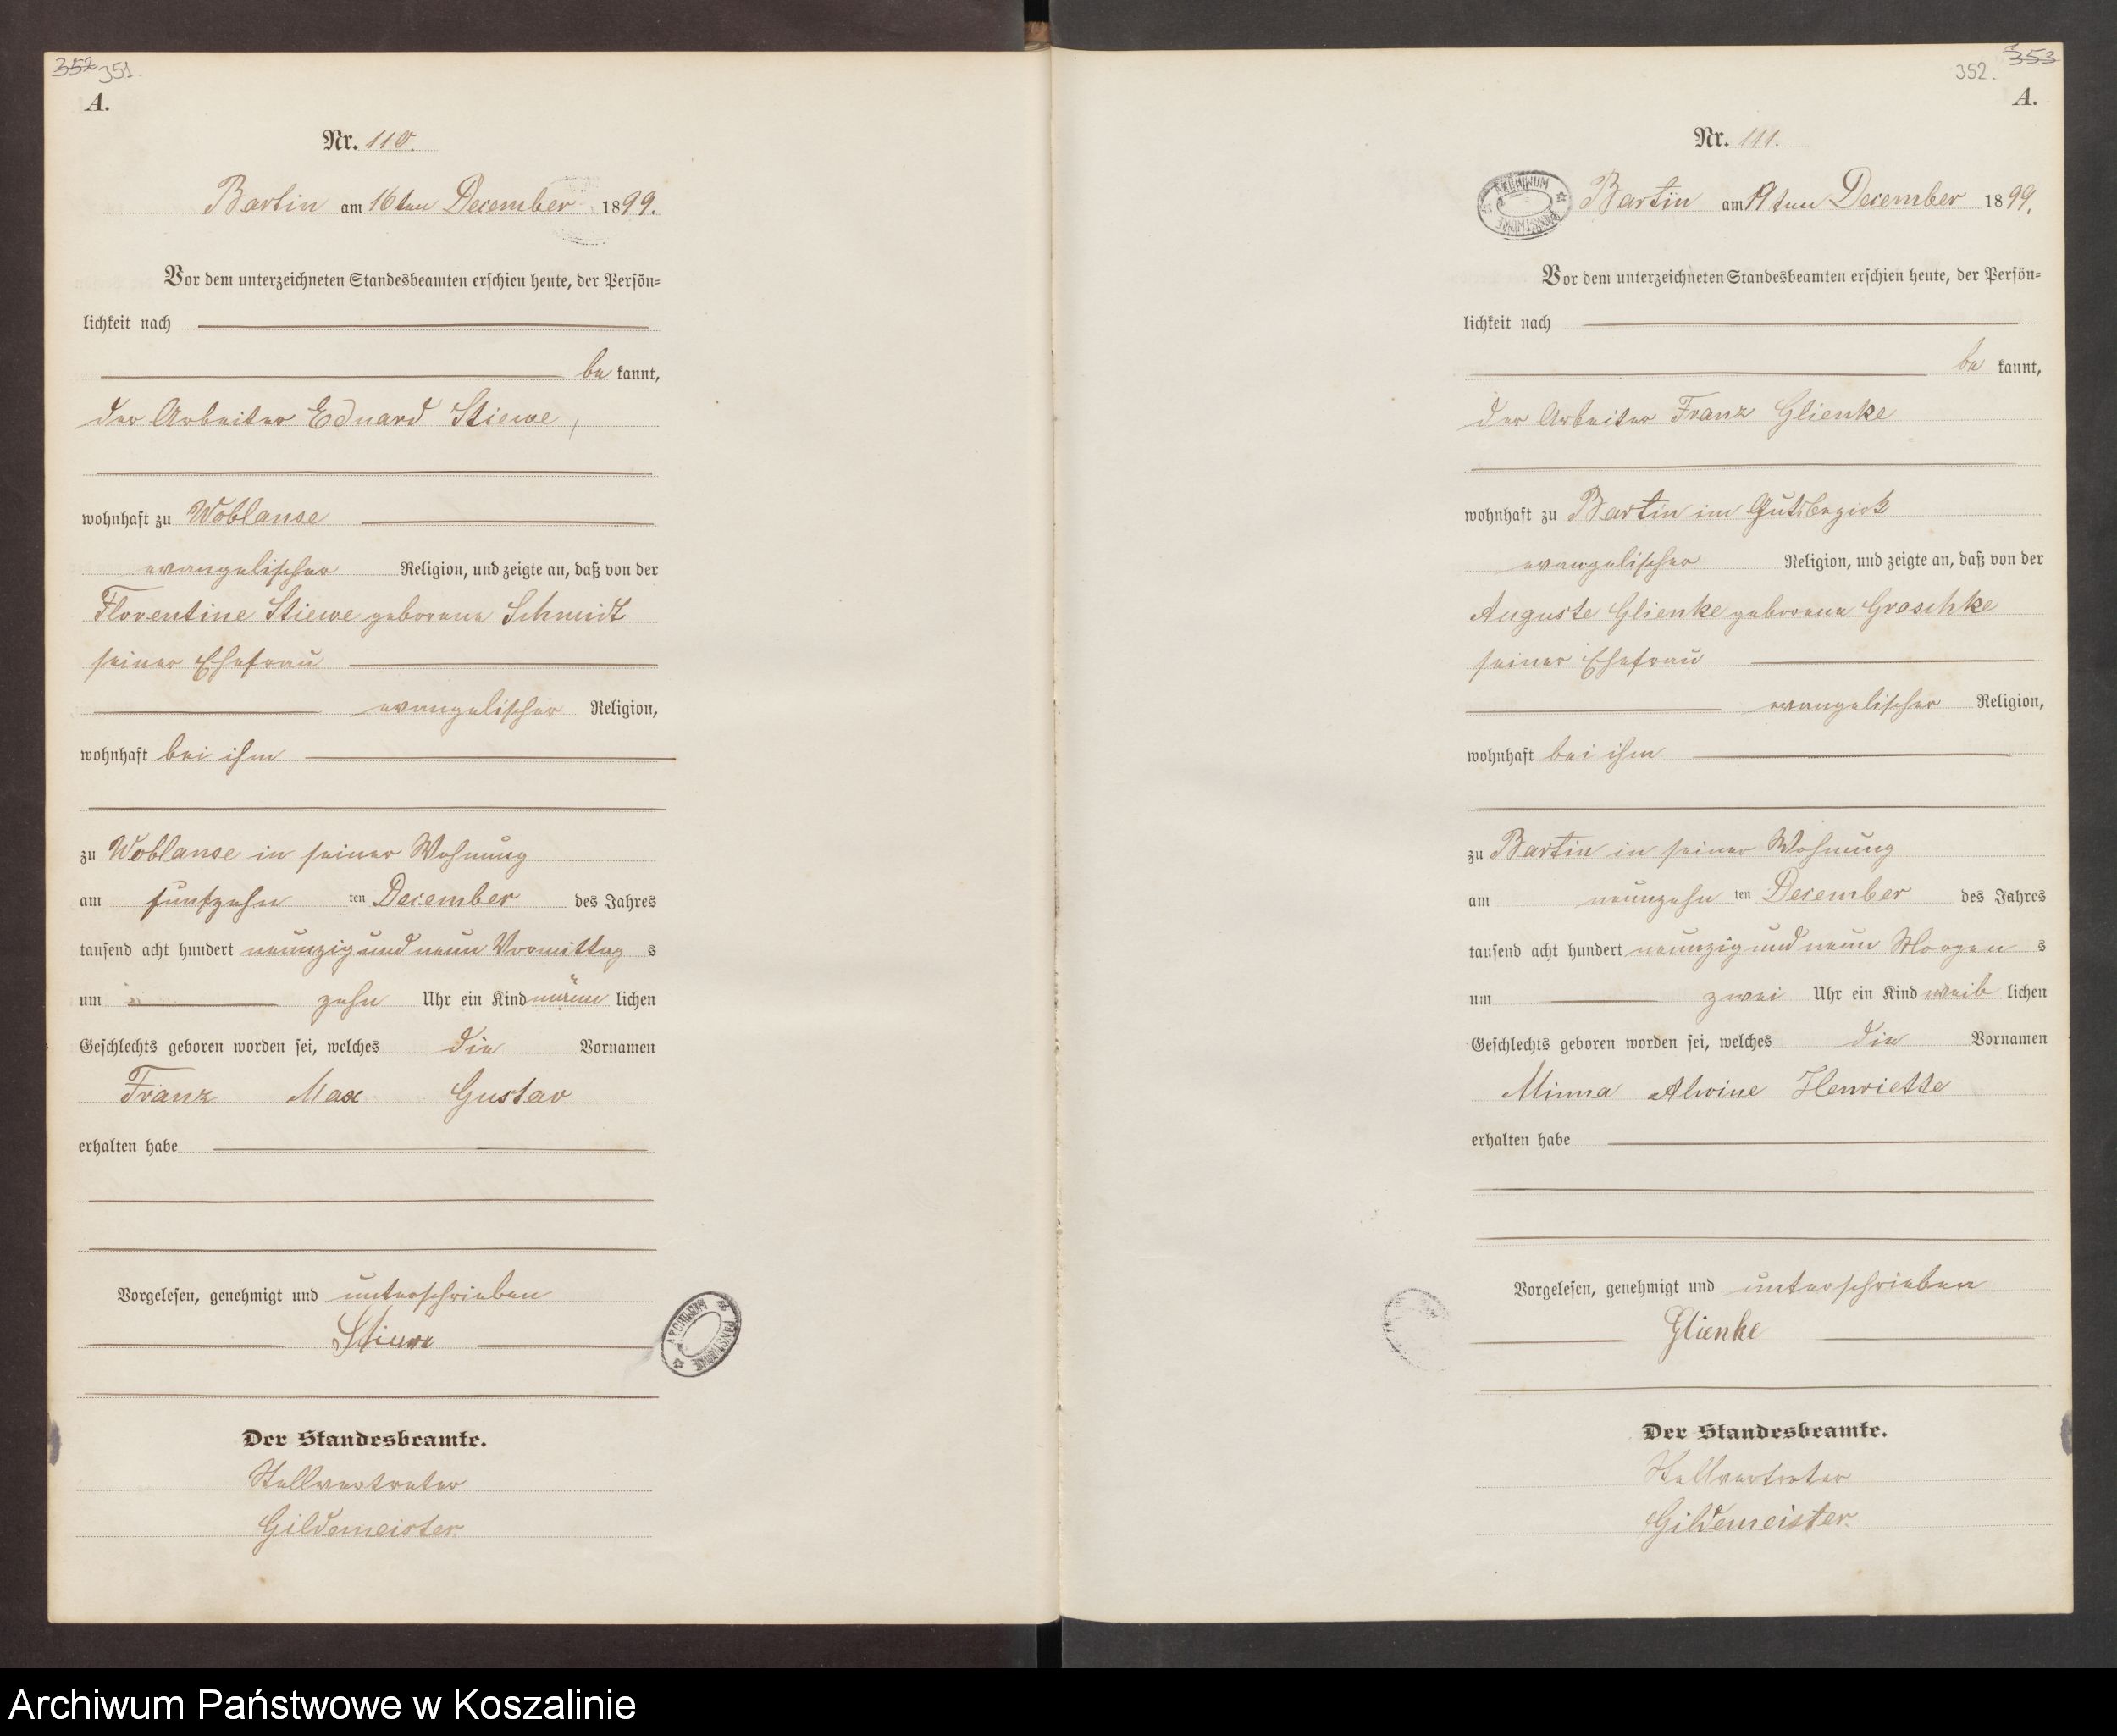 352 351.
A.
Nr. 110.
Bartin am 16ten December 1899.
Vor dem unterzeichneten Standesbeamten erschien heute, der Persön-
lichkeit nach
be kannt,
der Arbeiter Eduard Stiewe,
wohnhaft zu Woblanse
evangelischer Religion, und zeigte an, daß von der
Florentine Stiewe geborene Schmidt
seiner Ehefrau
evangelischer Religion,
wohnhaft bei ihm
zu Woblanse in seiner Wohnung
am fünfzehn ten December des Jahres
tausend acht hundert neunzig und neun Vormittag s
um zehn Uhr ein Kind männ lichen
Geschlechts geboren worden sei, welches die Vornamen
Franz Max Gustav
erhalten habe
Vorgelesen, genehmigt und unterschrieben
Stiewe
Der Standesbeamte.
Stellvertreter
Gildemeister.
ARCHIWUM PAŃSTWOWE
352. 353
A.
Nr. 111.
ARCHIWUM PAŃSTWOWE
Bartin am 19ten December 1899.
Vor dem unterzeichneten Standesbeamten erschien heute, der Persön-
lichkeit nach
be kannt,
der Arbeiter Franz Glienke
wohnhaft zu Bartin im Gutsbezirk
evangelischer Religion, und zeigte an, daß von der
Auguste Glienke geborene Groschke
seiner Ehefrau
evangelischer Religion,
wohnhaft bei ihm
zu Bartin in seiner Wohnung
am neunzehn ten December des Jahres
tausend acht hundert neunzig und neun Morgen s
um zwei Uhr ein Kind weib lichen
Geschlechts geboren worden sei, welches die Vornamen
Minna Alwine Henriette
erhalten habe
Vorgelesen, genehmigt und unterschrieben
Glienke
Der Standesbeamte.
Stellvertreter
Gildemeister.
Archiwum Państwowe w Koszalinie